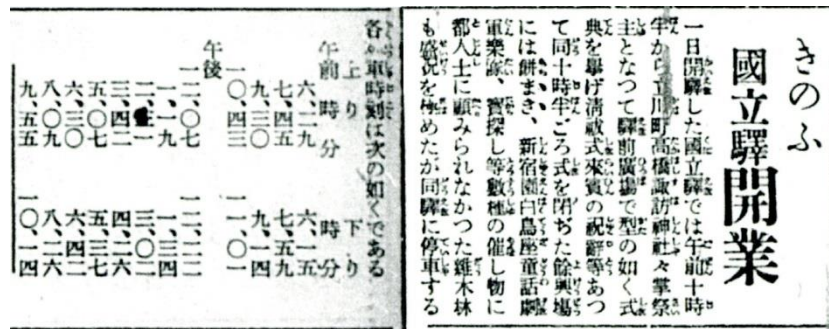 きのふ
國立驛開業
一日開驛した國立驛では午前十時
半から立川町高橋諏訪神社々掌祭
主となつて驛前廣場で型の如く式
典を擧げ清祓式來賓の祝辭等あつ
て同十時半ごろ式を閉ぢた餘興場
には餅まき、新宿園白鳥座童話劇
軍樂隊、寳探し等數種の催し物に
都人士に顧みられなかつた雜木林
も盛況を極めたが同驛に停車する
各車時刻は次の如くである
上り 下り
午前 時分 時分
六、二九 六、一五
七、四五 七、五九
九、三〇 九、一四
一〇、四三 一一、〇一
午後
一二、〇七 一二、二二
一、一九 一、三四
二、一 三、〇二
三、四二 四、二六
五、〇七 五、三七
六、三〇 六、四二
八、〇九 八、二六
九、五五 一〇、一四